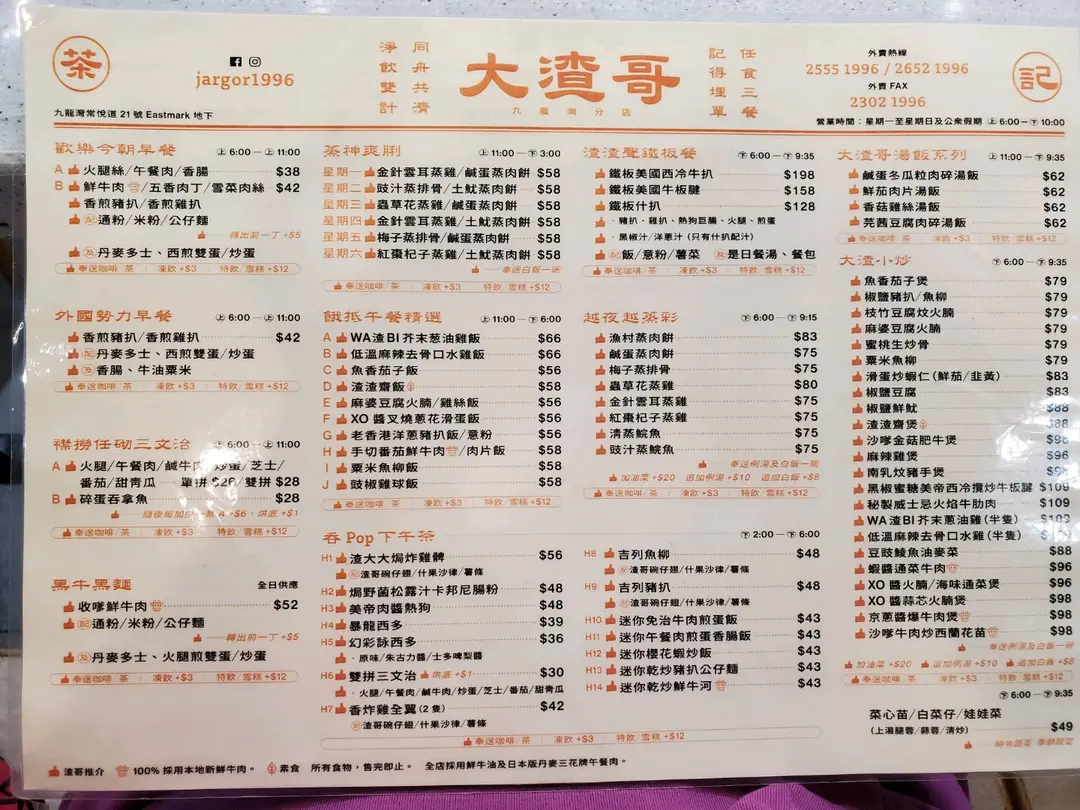 茶
jargor1996
九龍灣常悅道 21 號 Eastmark 地下
淨飲雙計
同舟共濟
大渣哥
九龍灣分店
記得埋單
任食三餐
外賣熱線
2555 1996 / 2652 1996
外賣 FAX
2302 1996
營業時間：星期一至星期日及公眾假期 上 6:00－下 10:00
記
歡樂今朝早餐 上 6:00－上 11:00
A 火腿絲/午餐肉/香腸 $38
B 鮮牛肉/五香肉丁/雪菜肉絲 $42
香煎豬扒/香煎雞扒
配 通粉/米粉/公仔麵
轉出前一丁 +$5
及 丹麥多士、西煎雙蛋/炒蛋
奉送咖啡/茶 凍飲+$3 特飲/雪糕+$12
外國勢力早餐 上 6:00－上 11:00
香煎豬扒/香煎雞扒 $42
配 丹麥多士、西煎雙蛋/炒蛋
及 香腸、牛油粟米
奉送咖啡/茶 凍飲+$3 特飲/雪糕+$12
襟撈任砌三文治 上 6:00－上 11:00
A 火腿/午餐肉/鹹牛肉/炒蛋/芝士/
番茄/甜青瓜 單拼 $26/雙拼 $28
B 碎蛋吞拿魚 $28
奉送咖啡/茶 凍飲+$3 特飲/雪糕+$12
黑牛黑麵 全日供應
收嗲鮮牛肉 $52
配 通粉/米粉/公仔麵
轉出前一丁 +$5
及 丹麥多士、火腿煎雙蛋/炒蛋
奉送咖啡/茶 凍飲+$3 特飲/雪糕+$12
蒸神爽脷 上 11:00－下 3:00
星期一 金針雲耳蒸雞/鹹蛋蒸肉餅 $58
星期二 豉汁蒸排骨/土魷蒸肉餅 $58
星期三 蟲草花蒸雞/鹹蛋蒸肉餅 $58
星期四 金針雲耳蒸雞/土魷蒸肉餅 $58
星期五 梅子蒸排骨/鹹蛋蒸肉餅 $58
星期六 紅棗杞子蒸雞/土魷蒸肉餅 $58
奉送白飯一碗
奉送咖啡/茶 凍飲+$3 特飲/雪糕+$12
餓抵午餐精選 上 11:00－下 6:00
A WA渣BI芥末葱油雞飯 $66
B 低溫麻辣去骨口水雞飯 $66
C 魚香茄子飯 $56
D 渣渣齋飯 $58
E 麻婆豆腐火腩/雞絲飯 $56
F XO 醬叉燒蔥花滑蛋飯 $56
G 老香港洋蔥豬扒飯/意粉 $56
H 手切番茄鮮牛肉/肉片飯 $58
I 粟米魚柳飯 $58
J 豉椒雞球飯 $58
奉送咖啡/茶 凍飲+$3 特飲/雪糕+$12
渣渣聲鐵板餐 下 6:00－下 9:35
鐵板美國西冷牛扒 $198
鐵板美國牛板腱 $158
鐵板什扒 $128
·豬扒、雞扒、熱狗巨腸、火腿、煎蛋
·黑椒汁/洋蔥汁 (只有什扒配汁)
配 飯/意粉/薯菜 及 是日餐湯、餐包
奉送咖啡/茶 凍飲+$3 特飲/雪糕+$12
越夜越蒸彩 下 6:00－下 9:15
漁村蒸肉餅 $83
鹹蛋蒸肉餅 $75
梅子蒸排骨 $75
蟲草花蒸雞 $80
金針雲耳蒸雞 $75
紅棗杞子蒸雞 $75
清蒸鯇魚 $75
豉汁蒸鯇魚 $75
奉送例湯及白飯一碗
加油菜 +$20 追加例湯 +$10 追加白飯 +$8
奉送咖啡/茶 凍飲+$3 特飲/雪糕+$12
吞 Pop 下午茶 下 2:00－下 6:00
H1 渣大大焗炸雞髀 $56
配 渣哥碗仔翅/什果沙律/薯條
H2 焗野菌松露汁卡邦尼腸粉 $48
H3 美帝肉醬熱狗 $48
H4 暴龍西多 $39
H5 幻彩詠西多 $36
·原味/朱古力醬/士多啤梨醬
H6 雙拼三文治 烘底 +$1 $30
·火腿/午餐肉/鹹牛肉/炒蛋/芝士/番茄/甜青瓜
H7 香炸雞全翼 (2 隻) $42
配 渣哥碗仔翅/什果沙律/薯條
H8 吉列魚柳 $48
配 渣哥碗仔翅/什果沙律/薯條
H9 吉列豬扒 $48
配 渣哥碗仔翅/什果沙律/薯條
H10 迷你免治牛肉煎蛋飯 $43
H11 迷你午餐肉煎蛋香腸飯 $43
H12 迷你櫻花蝦炒飯 $43
H13 迷你乾炒豬扒公仔麵 $43
H14 迷你乾炒鮮牛河 $43
奉送咖啡/茶 凍飲+$3 特飲/雪糕+$12
大渣哥湯飯系列 上 11:00－下 9:35
鹹蛋冬瓜粒肉碎湯飯 $62
鮮茄肉片湯飯 $62
香菇雞絲湯飯 $62
芫茜豆腐肉碎湯飯 $62
奉送咖啡/茶 凍飲+$3 特飲/雪糕+$12
大渣小炒 下 6:00－下 9:35
魚香茄子煲 $79
椒鹽豬扒/魚柳 $79
枝竹豆腐炆火腩 $79
麻婆豆腐火腩 $79
蜜桃生炒骨 $79
粟米魚柳 $79
滑蛋炒蝦仁 (鮮茄/韭黃) $83
椒鹽豆腐 $83
椒鹽鮮魷 $88
渣渣齋煲 $88
沙嗲金菇肥牛煲 $98
麻辣雞煲 $96
南乳炆豬手煲
黑椒蜜糖美帝西冷攪炒牛板腱 $109
秘製威士忌火焰牛肋肉 $109
WA 渣BI 芥末蔥油雞 (半隻)
低溫麻辣去骨口水雞 (半隻)
豆豉鯪魚油麥菜 $88
蝦醬通菜牛肉 $96
XO 醬火腩/海味通菜煲 $96
XO 醬蒜芯火腩煲 $98
京蔥醬爆牛肉煲 $98
沙嗲牛肉炒西蘭花苗 $98
奉送例湯及白飯一碗
加油菜 +$20 追加例湯 +$10 追加白飯 +$8
奉送咖啡/茶 凍飲+$3 特飲/雪糕+$12
下 6:00－下 9:35
菜心苗/白菜仔/娃娃菜
(上湯腿蓉/蒜蓉/清炒) $49
渣哥推介 100% 採用本地新鮮牛肉。 素食 所有食物，售完即止。 全店採用鮮牛油及日本版丹麥三花牌午餐肉。